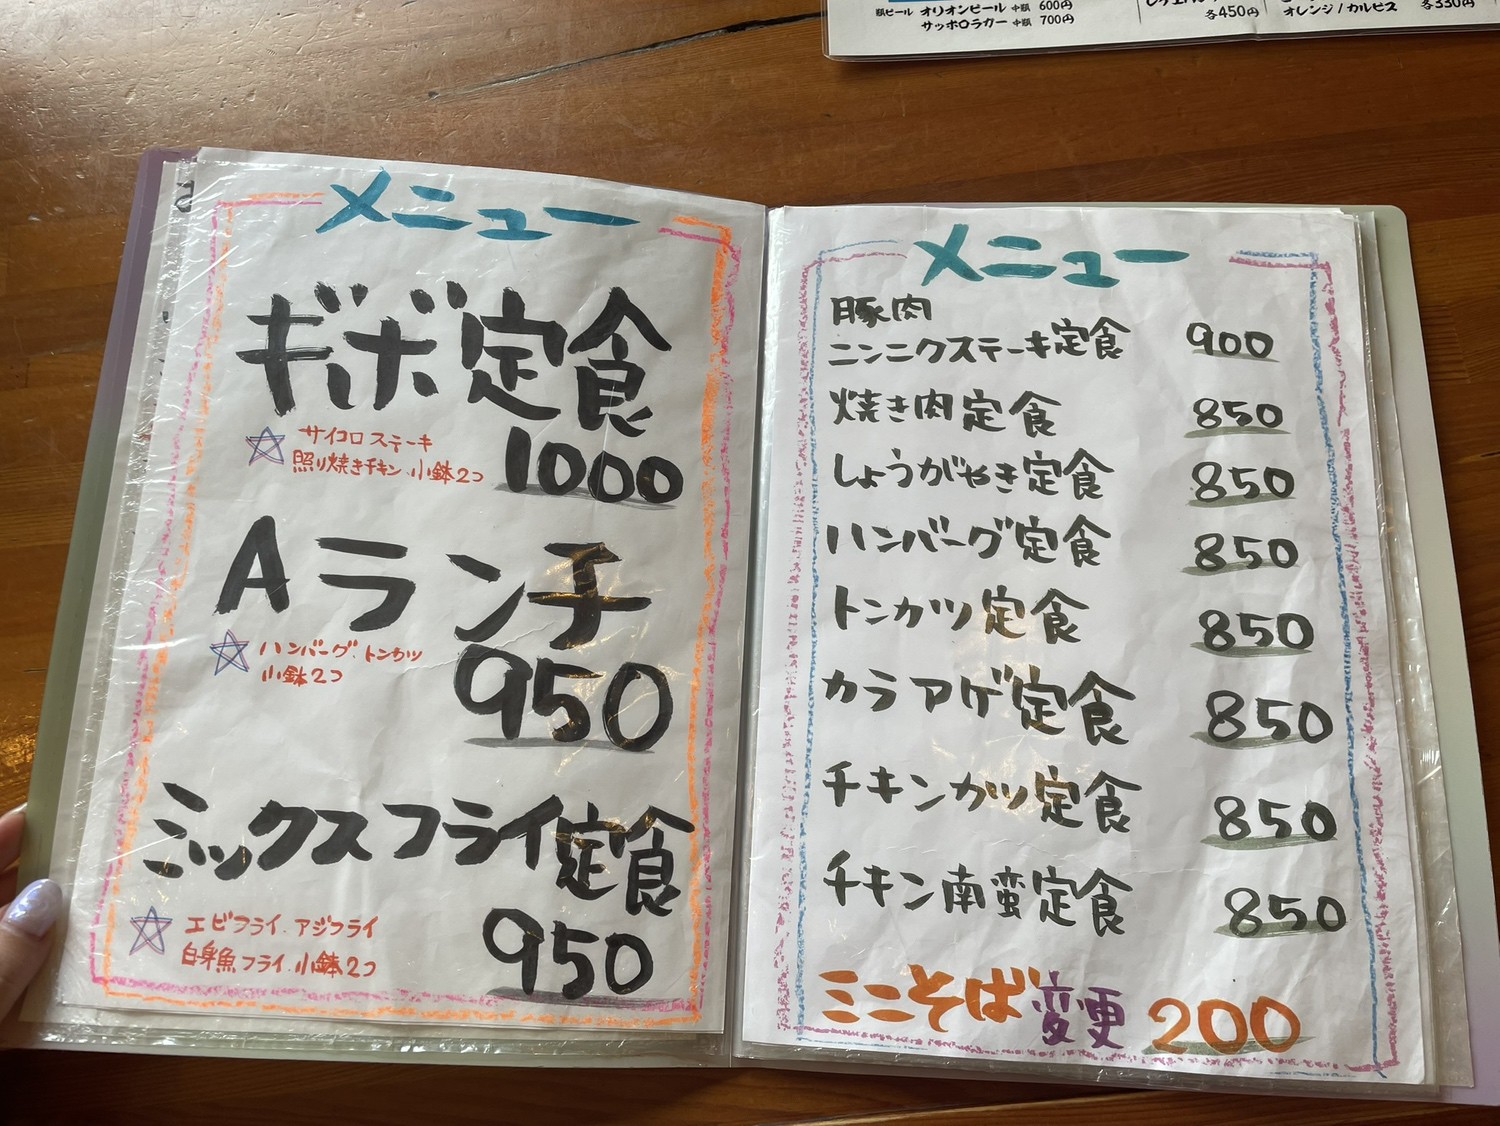 瓶ビール オリオンビール 中瓶 600円
サッポロラガー 中瓶 700円
各450円
オレンジ/カルピス 各330円
メニュー
ギボ定食
サイコロステーキ
照り焼きチキン 小鉢2つ
1000
Aランチ
ハンバーグ.トンカツ
小鉢2つ
950
ミックスフライ定食
エビフライ.アジフライ
白身魚フライ.小鉢2つ
950
メニュー
豚肉
ニンニクステーキ定食 900
焼き肉定食 850
しょうがやき定食 850
ハンバーグ定食 850
トンカツ定食 850
カラアゲ定食 850
チキンカツ定食 850
チキン南蛮定食 850
ミニそば変更 200